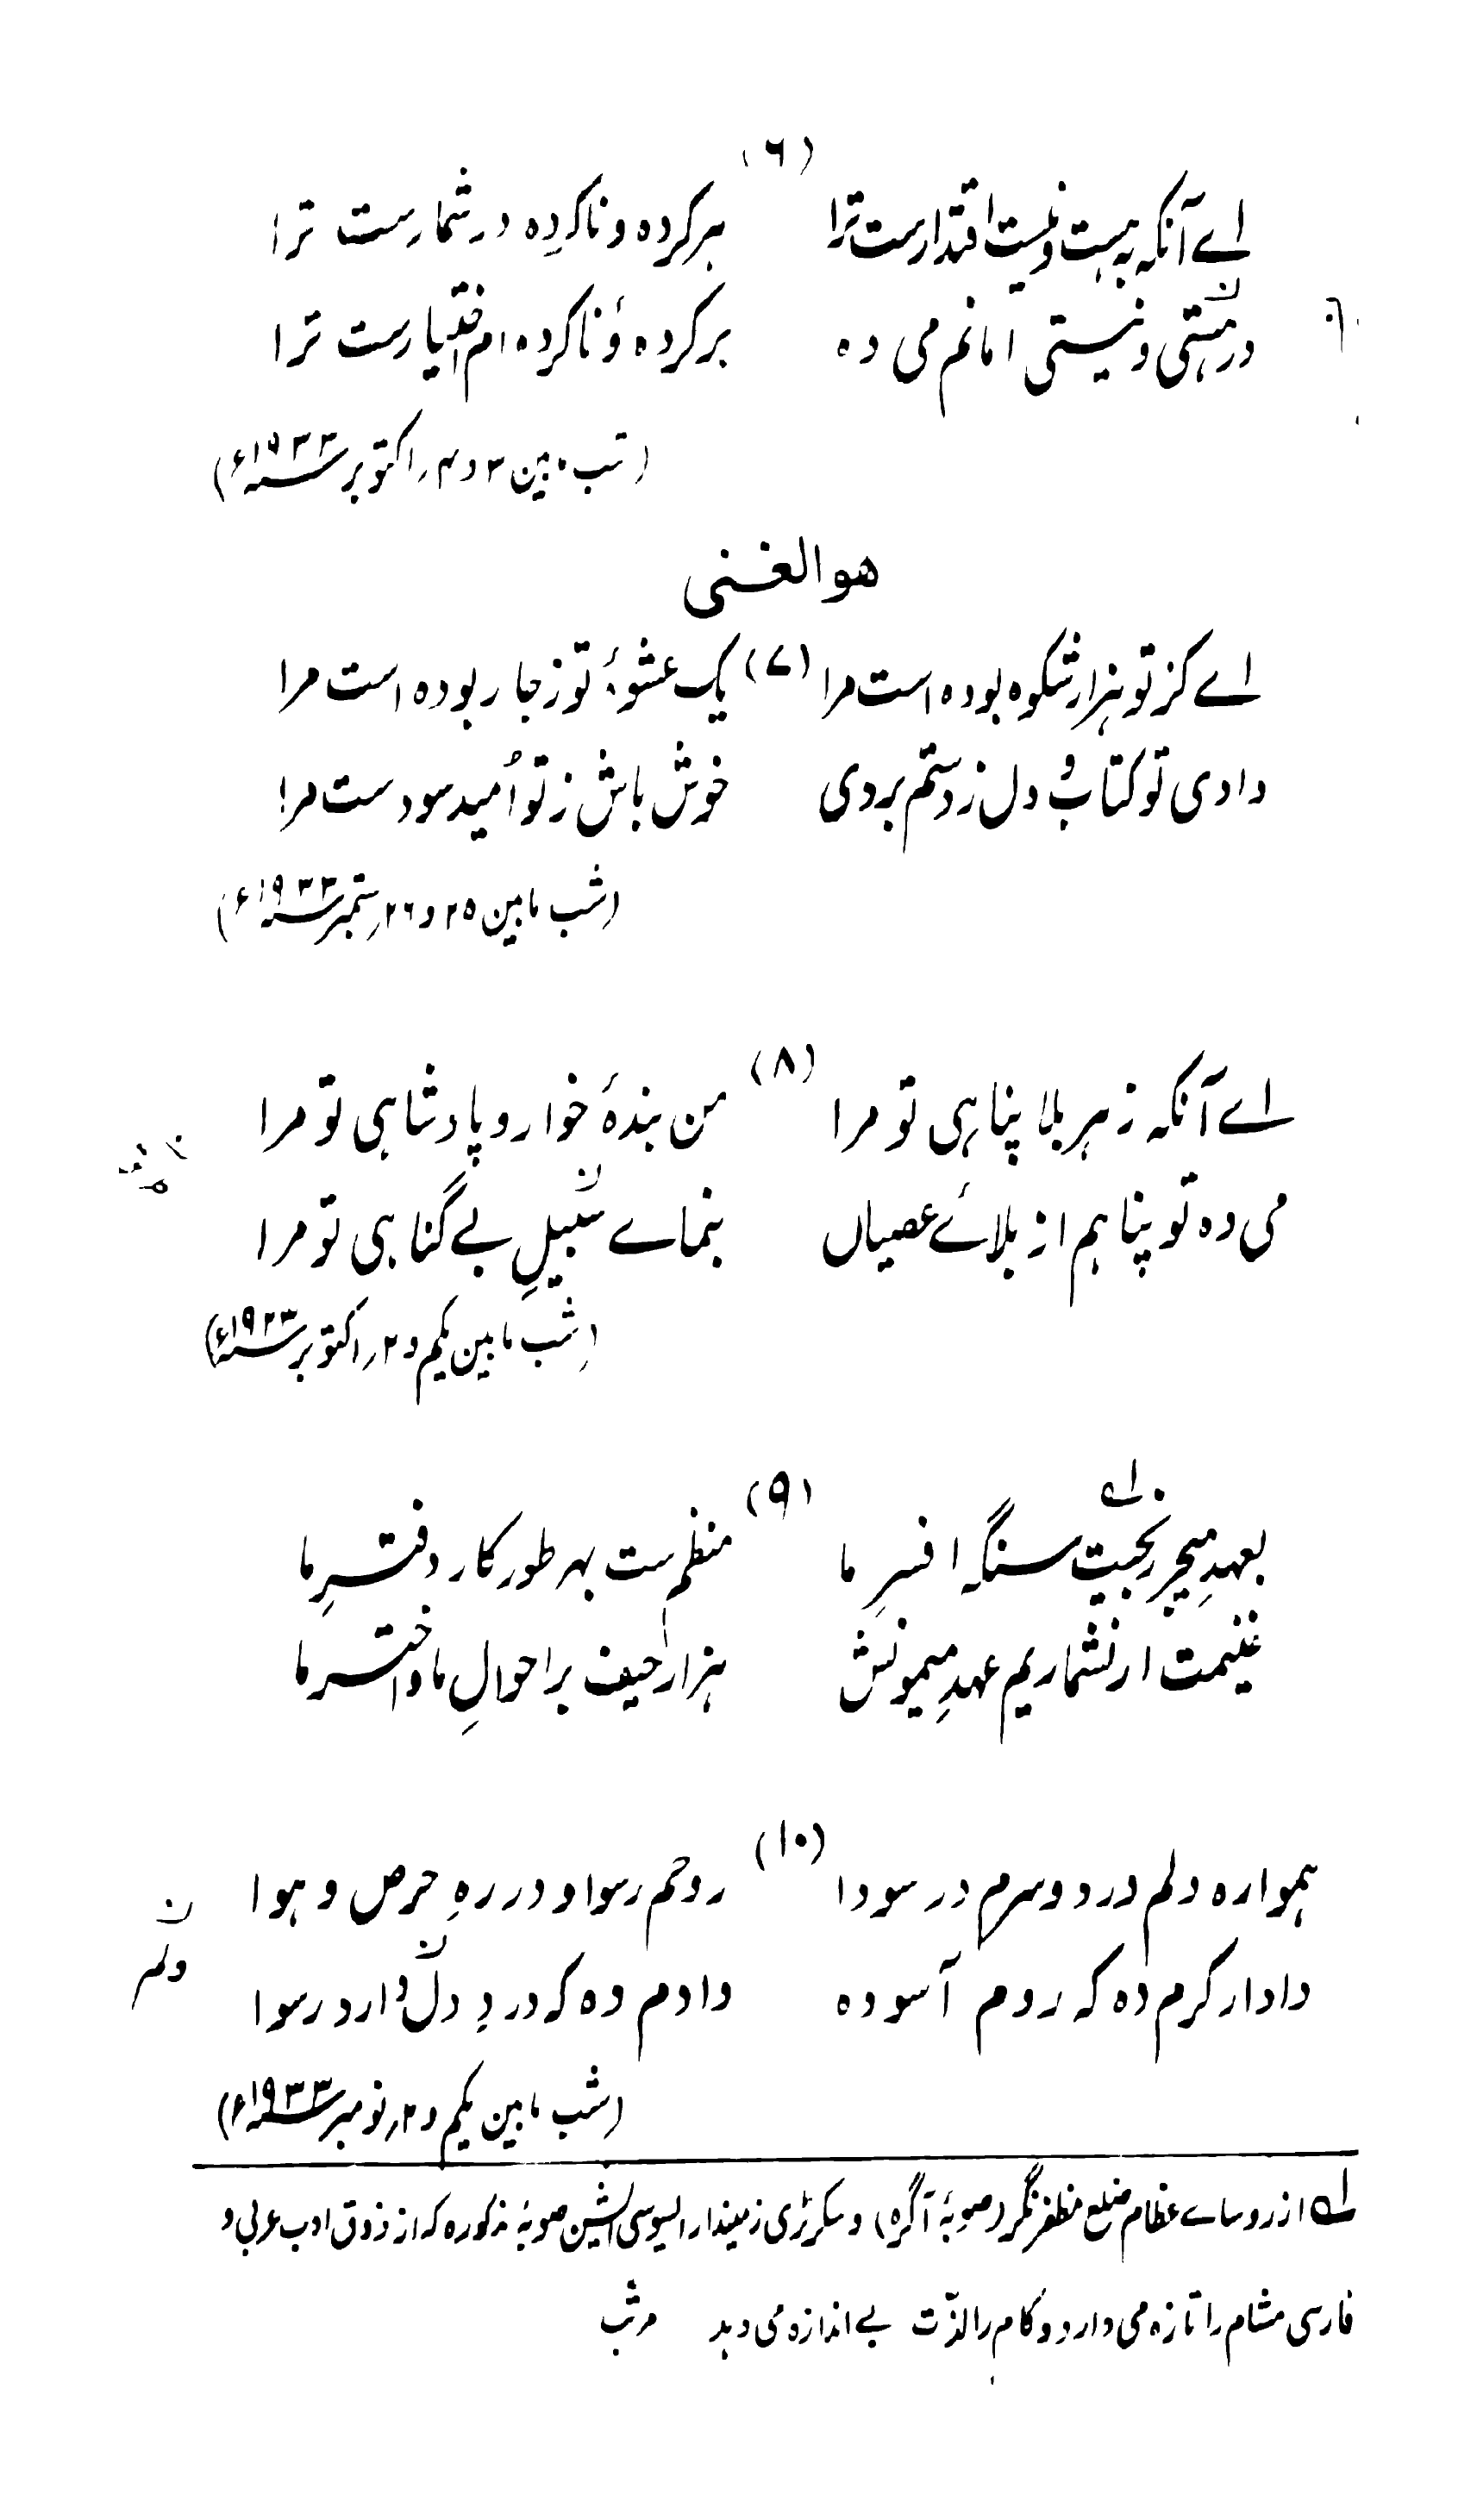 (۶)
اے آنکہ بہست و نیست اقتدارست ترا بر کردہ و ناکردہ در شمارست ترا
در ہستی و نیستی امانم می دہ بر کردہ و ناکردہ ام اختیارست ترا
(شب بین ۲ و ۳ر اکتوبر ۱۹۳۳ء)
هو الغنی
(۷)
اے کز تو ہزار شکوہ بودہ است مرا یک عشوۂ تو ز جا ربودہ است مرا
دادی تو کتاب و دل ز دستم بردی خوش باش ز تو اُمید سودست مرا
(شب مابین ۲۵ و ۲۶ر ستمبر ۱۹۳۳ء)
(۸)
اے آنکہ ز ہر بلا پناہی تو مرا من بندۂ خوار و پادشاہی تو مرا
می دہ تو پناہم از بلائے عصیاں بنمائے سبیلِ بے گناہی تو مرا
(شب مابین یکم و ۲ر اکتوبر ۱۹۳۳ء)
(۹)
بعہدِ میجر نجیت سنگہ افسرِ ما منظم ست بہر طور کار دفترِ ما
غنیمت ار نشماریم عہدِ میمونش ہزار حیف بر احوالِ ما و اخترِ ما
(۱۰)
ہموارہ دلم در دو سرم در سودا روحم رسوا و در رہِ حرص و ہوا
دادار کرم دہ کہ روم آسودہ دادم دہ کہ دردِ دل دارد رسوا
ن
ولم
(شب مابین یکم و ۲ر نومبر ۱۹۳۳ء)
لہ از روسائے عظام ضلع مظفرنگر (صوبۂ آگرہ) و سکرٹری زمیندار ایسوسی ایشن صوبۂ مذکورہ کہ از ذوق ادب عربی و
فارسی مشام را تازہ می دارد و کام را لذّت بے اندازہ می دہد مرتب